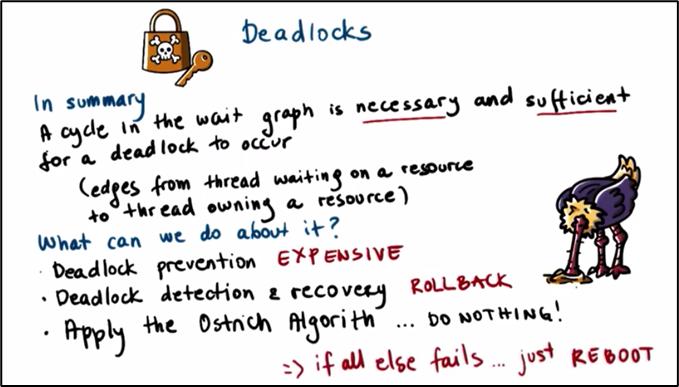 Deadlocks
In summary
A cycle in the wait graph is necessary and sufficient
for a deadlock to occur
(edges from thread waiting on a resource
to thread owning a resource)
What can we do about it?
· Deadlock prevention EXPENSIVE
• Deadlock detection & recovery ROLLBACK
• Apply the Ostrich Algorith ... DO NOTHING!
=> if all else fails ... just REBOOT